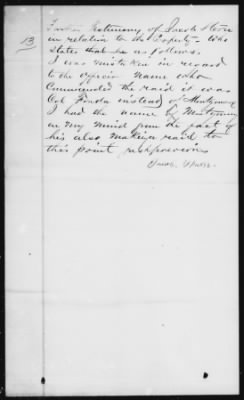 13
Further Testimony of Jacob
in relation to the Property who
states that as follows.
I was mistaken in regard
to the officer name who
Commanded the raid it was
Col instead of Montgomery
I had the name of Montgomery
in my mind from the fact of
his also making raid to
this point
Jacob